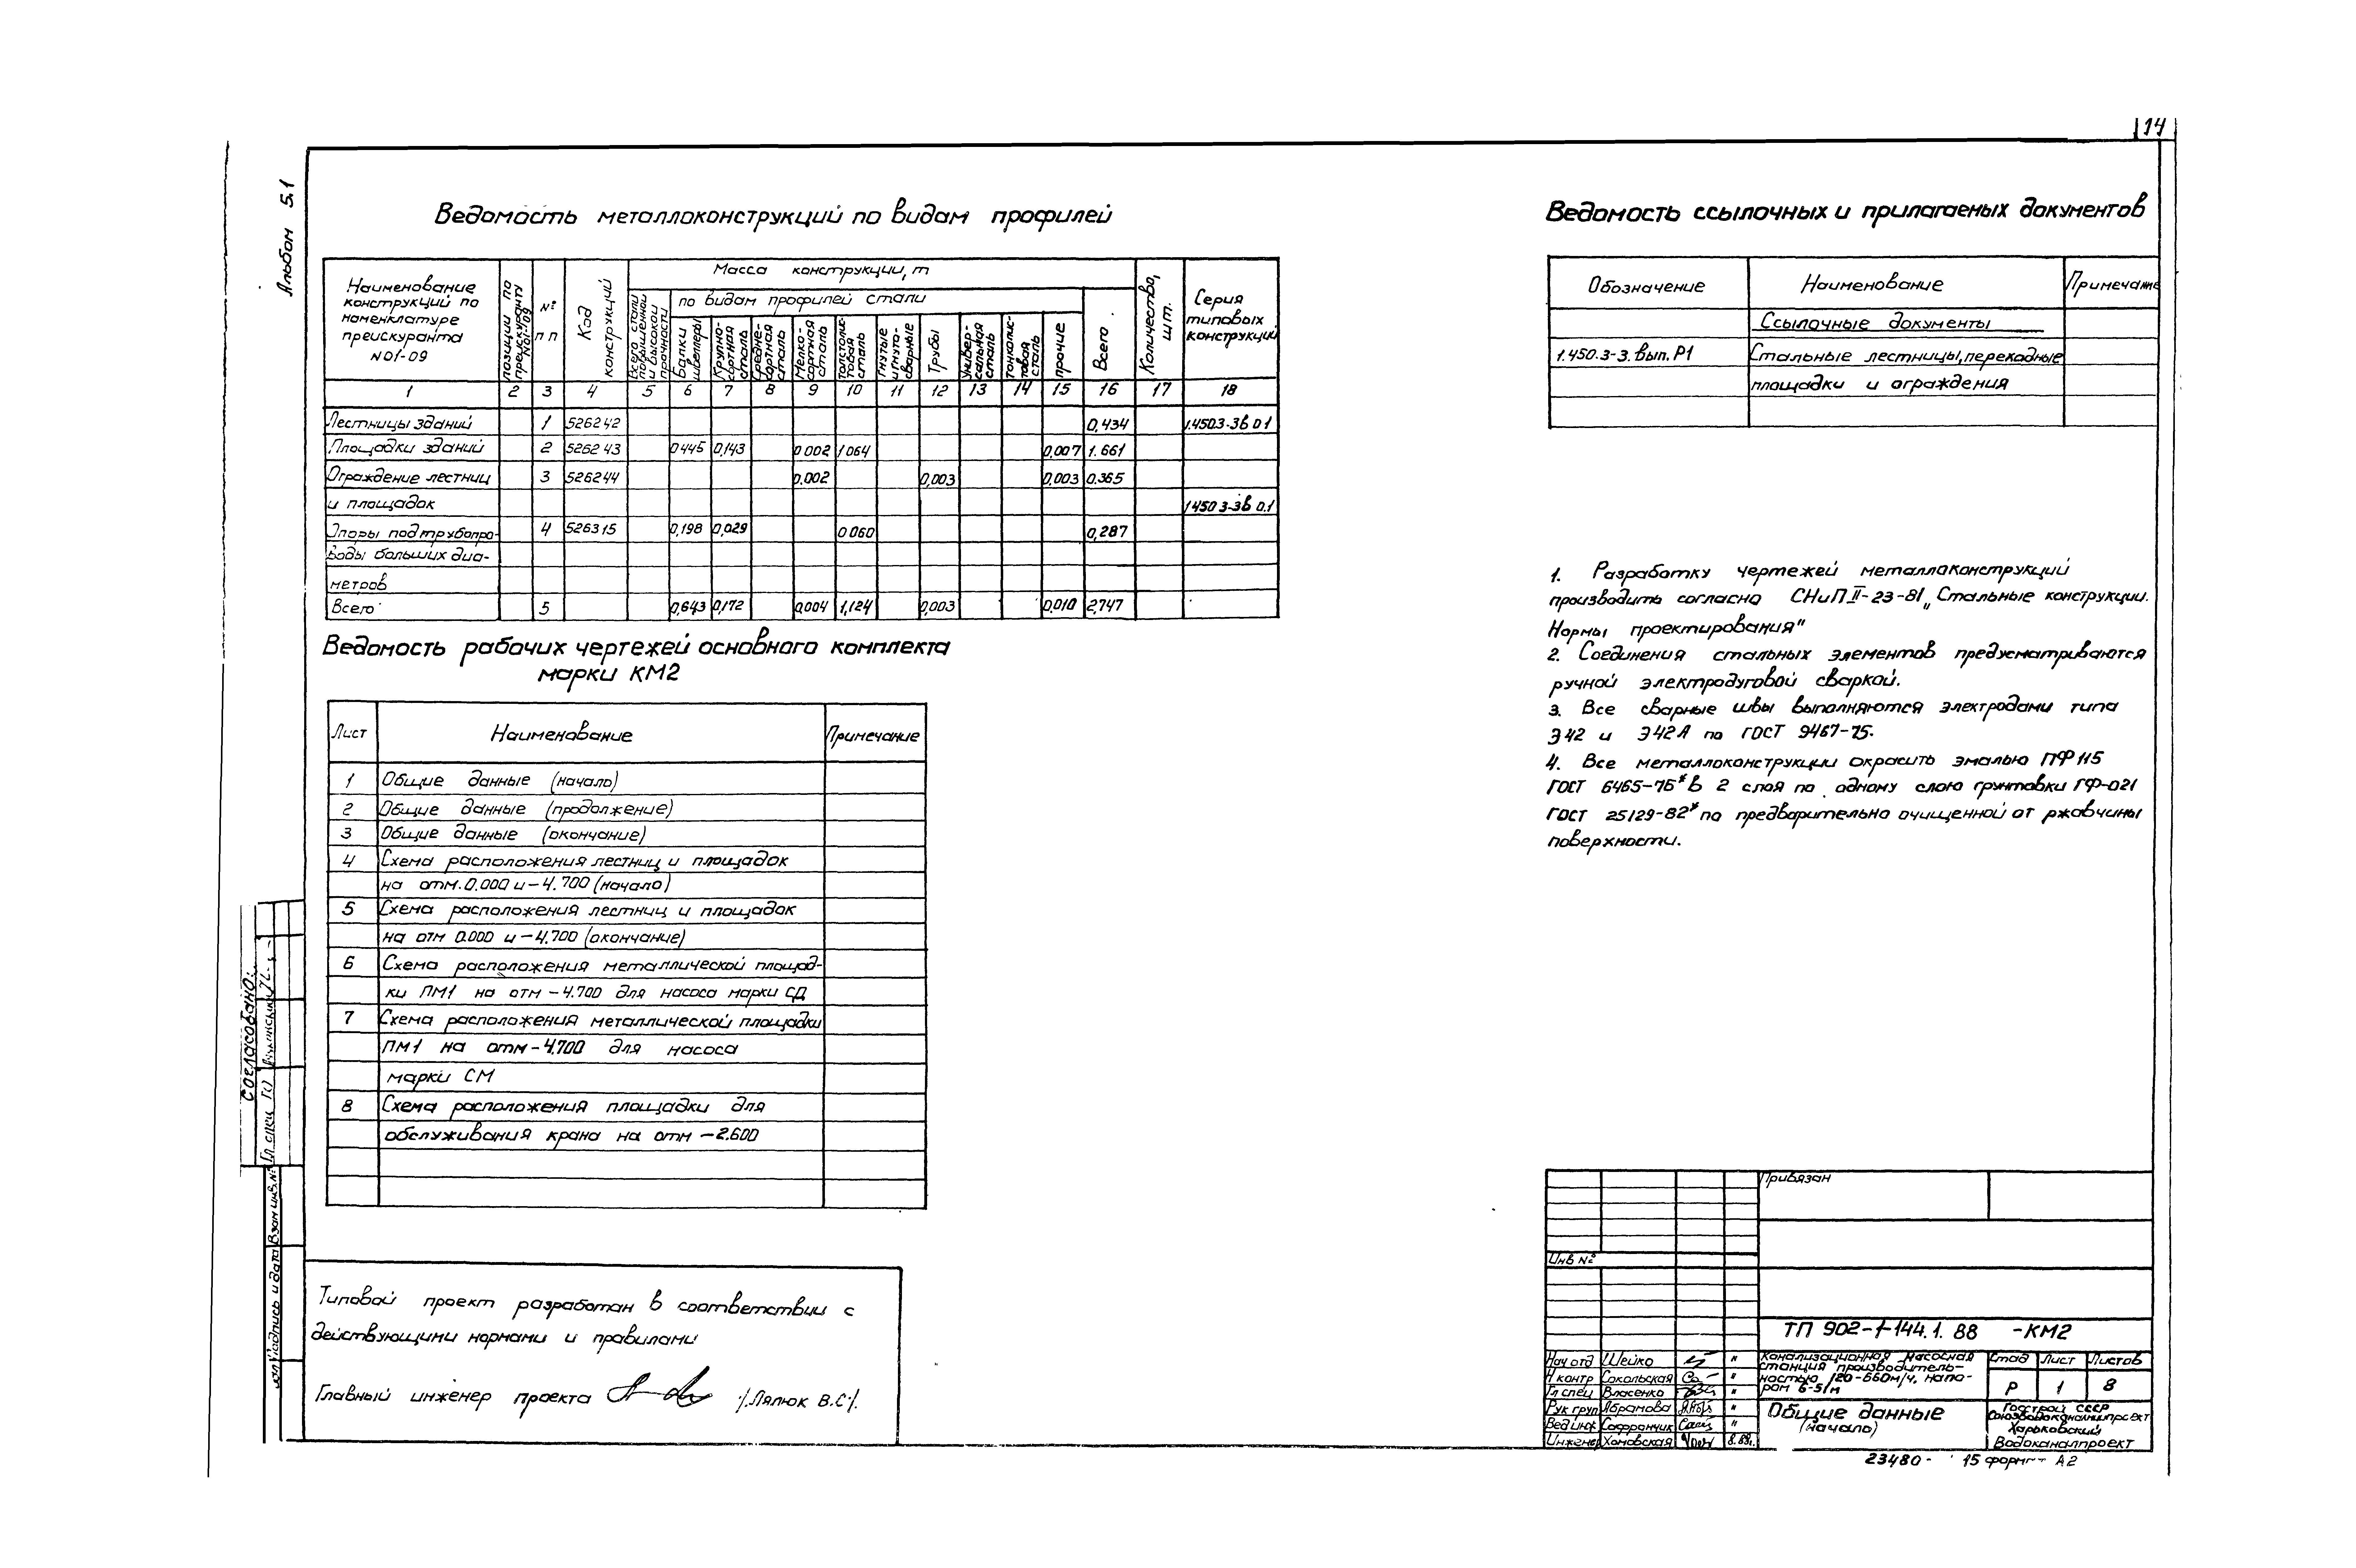 14
Альбом 5.1
Ведомость металлоконструкций по видам профилей
Наименование конструкций по номенклатуре прейскуранта N01-09
позиции по прейскуранту N01-09
№ п п
Код конструкций
Масса конструкции, т
Всего стали повышенной и высокой прочности
по видам профилей стали
Балки и швеллеры
Крупносортная сталь
Среднесортная сталь
Мелкосортная сталь
толстолистовая сталь
Гнутые и гнутосварные
Трубы
Универсальная сталь
тонколистовая сталь
прочие
Всего
Количество, шт.
Серия типовых конструкций
1 2 3 4 5 6 7 8 9 10 11 12 13 14 15 16 17 18
Лестницы зданий 1 526242 0,434 1.450.3-3в 0.1
Площадки зданий 2 526243 0445 0,143 0 002 1 064 0,007 1.661
Ограждение лестниц 3 526244 0.002 0,003 0,003 0.365
и площадок 1450 3-3в 0.1
Опоры под трубопро- 4 526315 0,198 0,029 0 060 0,287
воды больших диа-
метров
Всего 5 0,643 0,172 0,004 1,124 0,003 0,010 2,747
Ведомость рабочих чертежей основного комплекта
марки КМ2
Лист Наименование Примечание
1 Общие данные (начало)
2 Общие данные (продолжение)
3 Общие данные (окончание)
4 Схема расположения лестниц и площадок
на отм. 0.000 и -4.700 (начало)
5 Схема расположения лестниц и площадок
на отм 0.000 и -4.700 (окончание)
6 Схема расположения металлической площад-
ки ПМ1 на отм -4.700 для насоса марки СД
7 Схема расположения металлической площадки
ПМ1 на отм -4.700 для насоса
марки СМ
8 Схема расположения площадки для
обслуживания крана на отм -2.600
Типовой проект разработан в соответствии с
действующими нормами и правилами
Главный инженер проекта /Лялюк В.С/.
Согласовано:
Гл спец ГО
Подпись и дата Взам инв.№
Ведомость ссылочных и прилагаемых документов
Обозначение Наименование Примечание
Ссылочные документы
1.450.3-3. вып. Р1 Стальные лестницы, переходные
площадки и ограждения
1. Разработку чертежей металлоконструкций
производить согласно СНиП II-23-81 „Стальные конструкции.
Нормы проектирования"
2. Соединения стальных элементов предусматриваются
ручной электродуговой сваркой.
3. Все сварные швы выполняются электродами типа
Э42 и Э42А по ГОСТ 9467-75.
4. Все металлоконструкции окрасить эмалью ПФ 115
ГОСТ 6465-76* в 2 слоя по одному слою грунтовки ГФ-021
ГОСТ 25129-82* по предварительно очищенной от ржавчины
поверхности.
Привязан
Инв №
ТП 902-1-144.1. 88 -КМ2
Нач отд Шейко "
Н контр Сокольская "
Гл спец Власенко "
Рук груп Абрамова "
Вед инж Софрончик "
Инженер Хоновская 8.88г.
Канализационная насосная
станция производитель-
ностью 120-660м/ч, напо-
ром 6-51м
Стад Лист Листов
Р 1 8
Общие данные
(начало)
Госстрой СССР
Союзводоканалниипроект
Харьковский
Водоканалпроект
23480- 15 формат А2